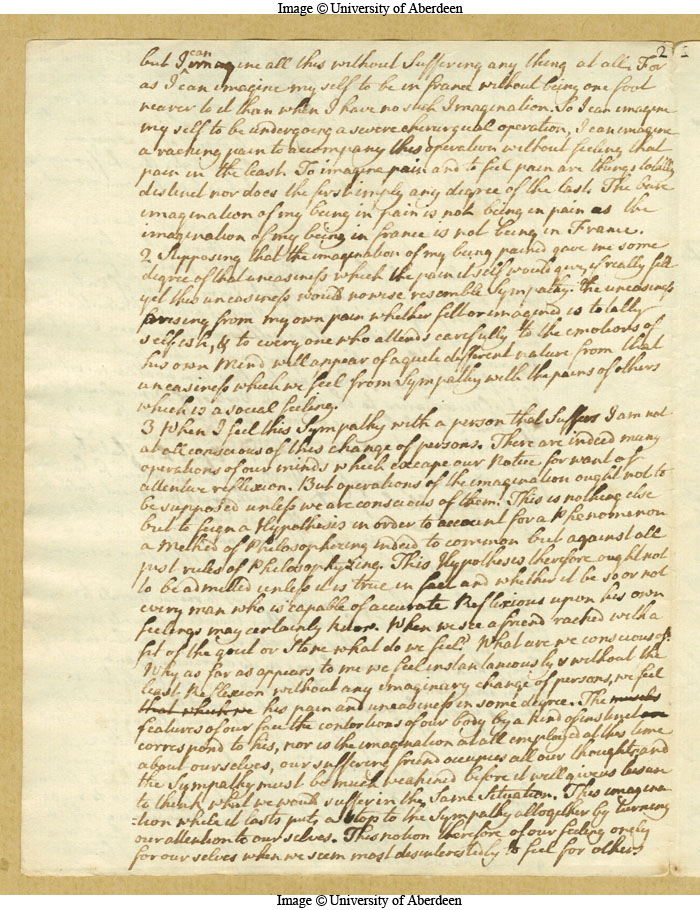 Image © University of Aberdeen
2
but I can imagine all this without Suffering any thing at all. For
as I can imagine my self to be in france without being one foot
nearer to it than when I have no such Imagination. So I can imagine
my self to be undergoing a severe chirurgical operation, I can imagine
a racking pain to accompany this operation without feeling that
pain in the least. To imagine pain and to feel pain are things totally
distinct nor does the first imply any degree of the last. The bare
imagination of my being in pain is not being in pain as the
imagination of my being in france is not being in France.
2 Supposing that the imagination of my being pained gave me some
degree of that uneasiness which the pain it self would give, if really felt
yet this uneasiness would nowise resemble Sympathy. The uneasiness
arising from my own pain whether felt or imagined is totally
selfish, & to every one who attends carefully to the emotions of
his own Mind will appear of a quite different nature from that
uneasiness which we feel from Sympathy with the pains of others
which is a social feeling.
3 When I feel this Sympathy with a person that Suffers I am not
at all conscious of this change of persons. There are indeed many
operations of our minds which escape our Notice for want of
attentive reflexion. But operations of the imagination ought not to
be supposed unless we are conscious of them. This is nothing else
but to feign a Hypothesis in order to account for a Phenomenon
a Method of Philosophizing indeed to common but against all
just rules of Philosophyzing. This Hypothesis therefore ought not
to be admitted unless it is true in fact and whether it be so or not
every man who is capable of accurate Reflexions upon his own
feelings may certainly know. When we see a friend racked with a
fit of the gout or Stone what do we feel? What are we conscious of?
Why as far as appears to me we feel instantaneously & without the
least Reflexion without any imaginary change of persons, we feel
that which we his pain and uneasiness in some degree. The muscles
features of our face the contortions of our body by a kind of instinct
correspond to his, nor is the imagination at all employed at this time
about ourselves, our suffering friend occupies all our thoughts, and
the Sympathy must be much weakened before it will give us leisure
to think what we would suffer in the Same Situation. This imagina
-tion while it lasts puts a stop to the Sympathy altogether by turning
our attention to our selves. This notion therefore of our feeling onely
for our selves when we seem most desinterestedly to feel for others
Image © University of Aberdeen